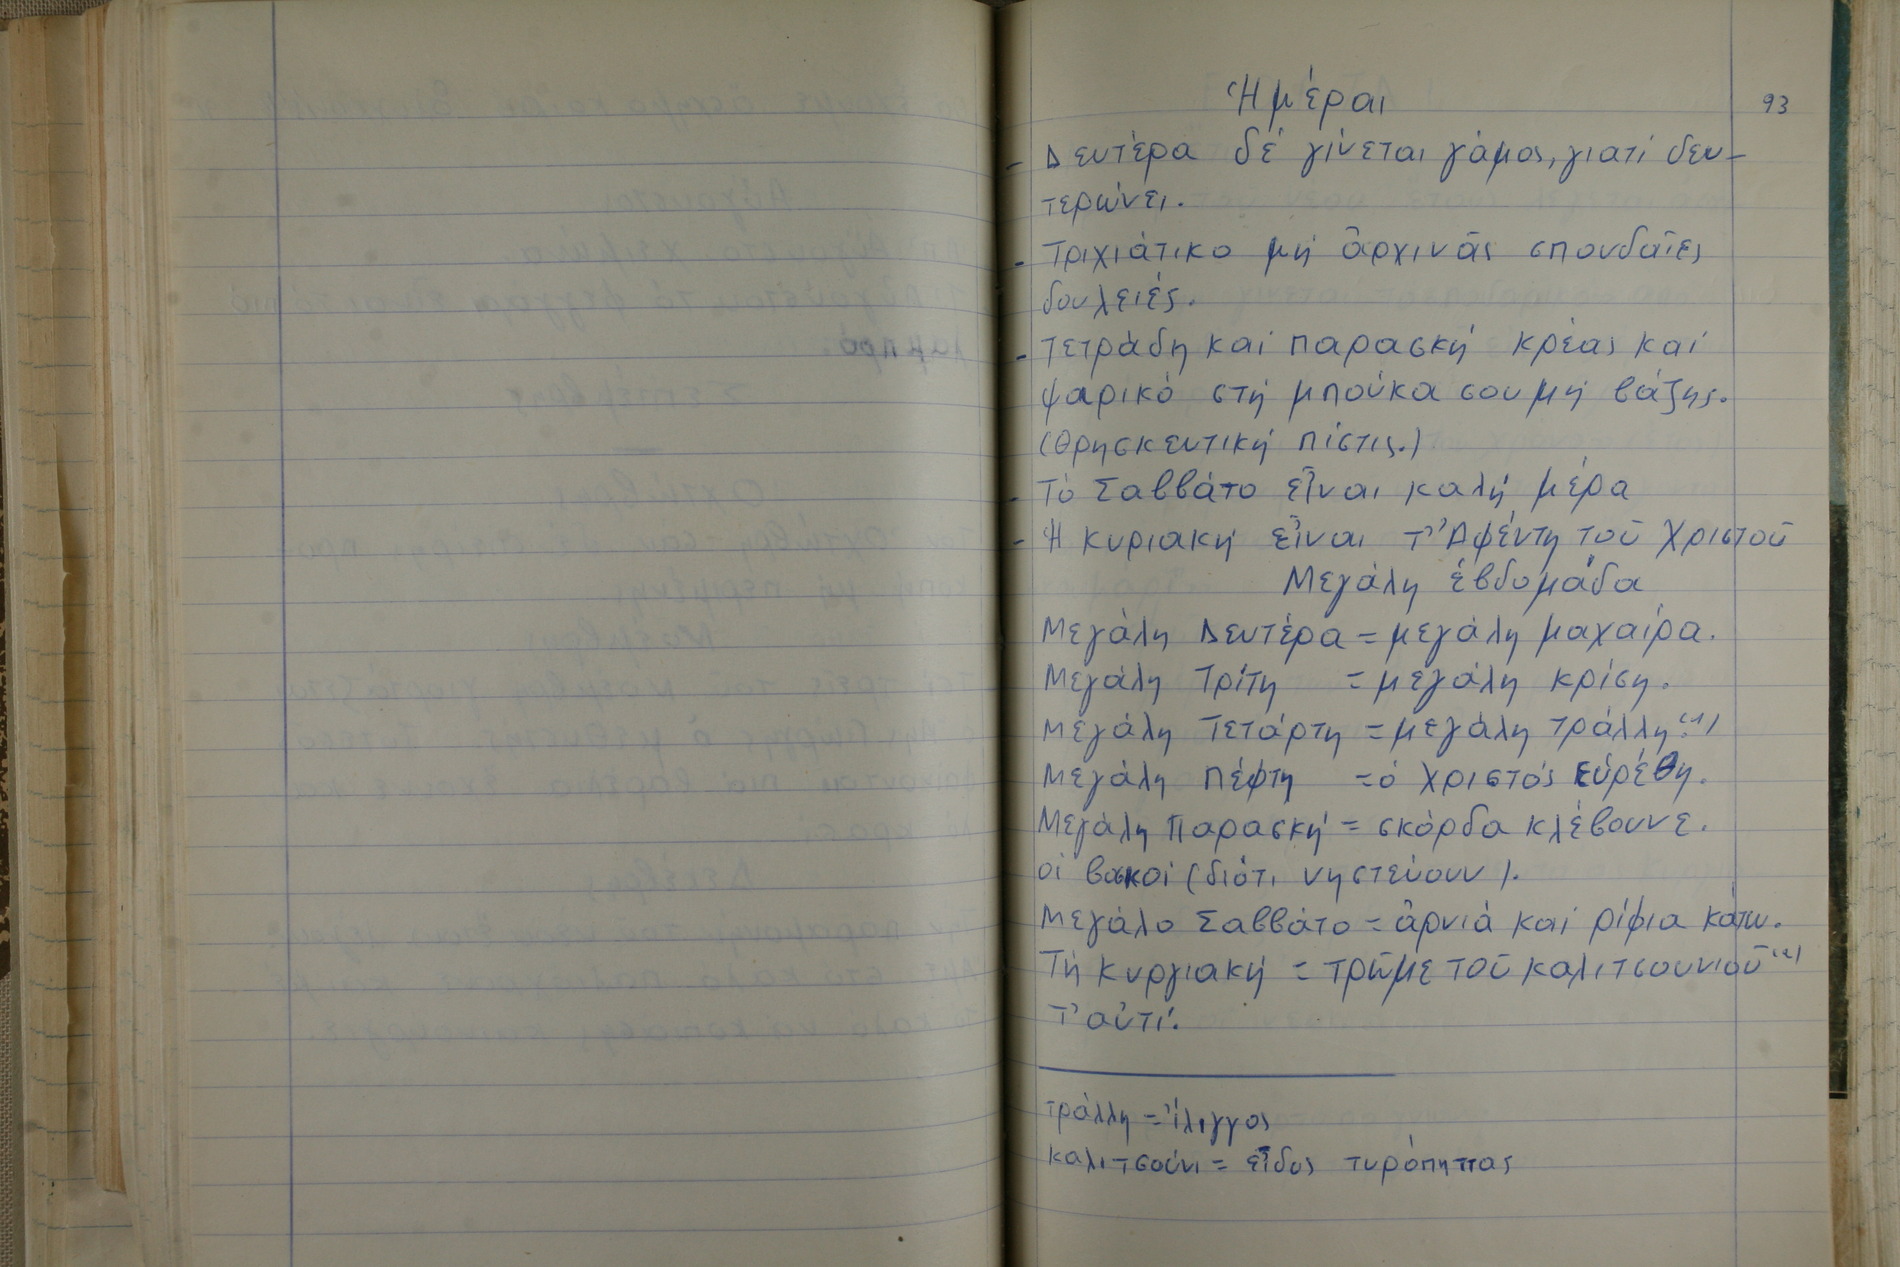 Ἡμέραι
93
- Δευτέρα δέ γίνεται γάμος, γιατί δευ-
τερώνει.
- Τριχιάτικο μή ἀρχινᾶς σπουδαῖες
δουλειές.
- Τετράδη καί παρασκή κρέας καί
ψαρικό στή μπούκα σου μή βάζης.
(θρησκευτική πίστις.)
- Τό Σαββάτο εἶναι καλή μέρα
- Ἡ κυριακή εἶναι τ' Ἀφέντη τοῦ Χριστοῦ
Μεγάλη ἑβδομάδα
Μεγάλη Δευτέρα = μεγάλη μαχαίρα.
Μεγάλη Τρίτη = μεγάλη κρίση.
Μεγάλη Τετάρτη = μεγάλη τράλλη.(1)
Μεγάλη Πέφτη = ὁ Χριστός εὑρέθη.
Μεγάλη Παρασκή = σκόρδα κλέβουνε.
οἱ βοσκοί (διότι νηστεύουν).
Μεγάλο Σαββάτο = ἀρνιά καί ρίφια κάτω.
Τή κυργιακή = τρῶμε τοῦ καλιτσουνιοῦ(2)
τ' αὐτί.
τράλλη = ἴλιγγος
καλιτσούνι = εἶδος τυρόπηττας